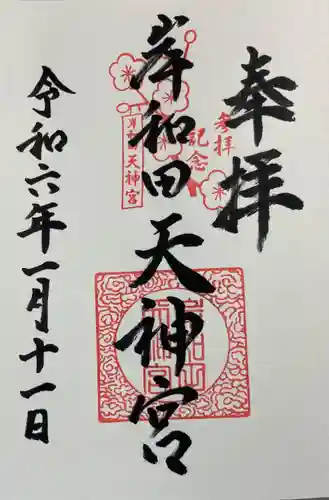 奉拝
参拝
記念
岸和田天神宮
天神宮
令和六年一月十一日